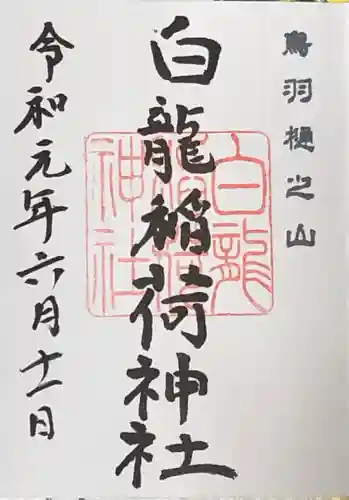 鳥羽樋之山
白龍稲荷神社
白龍稲荷神社
令和元年六月十一日